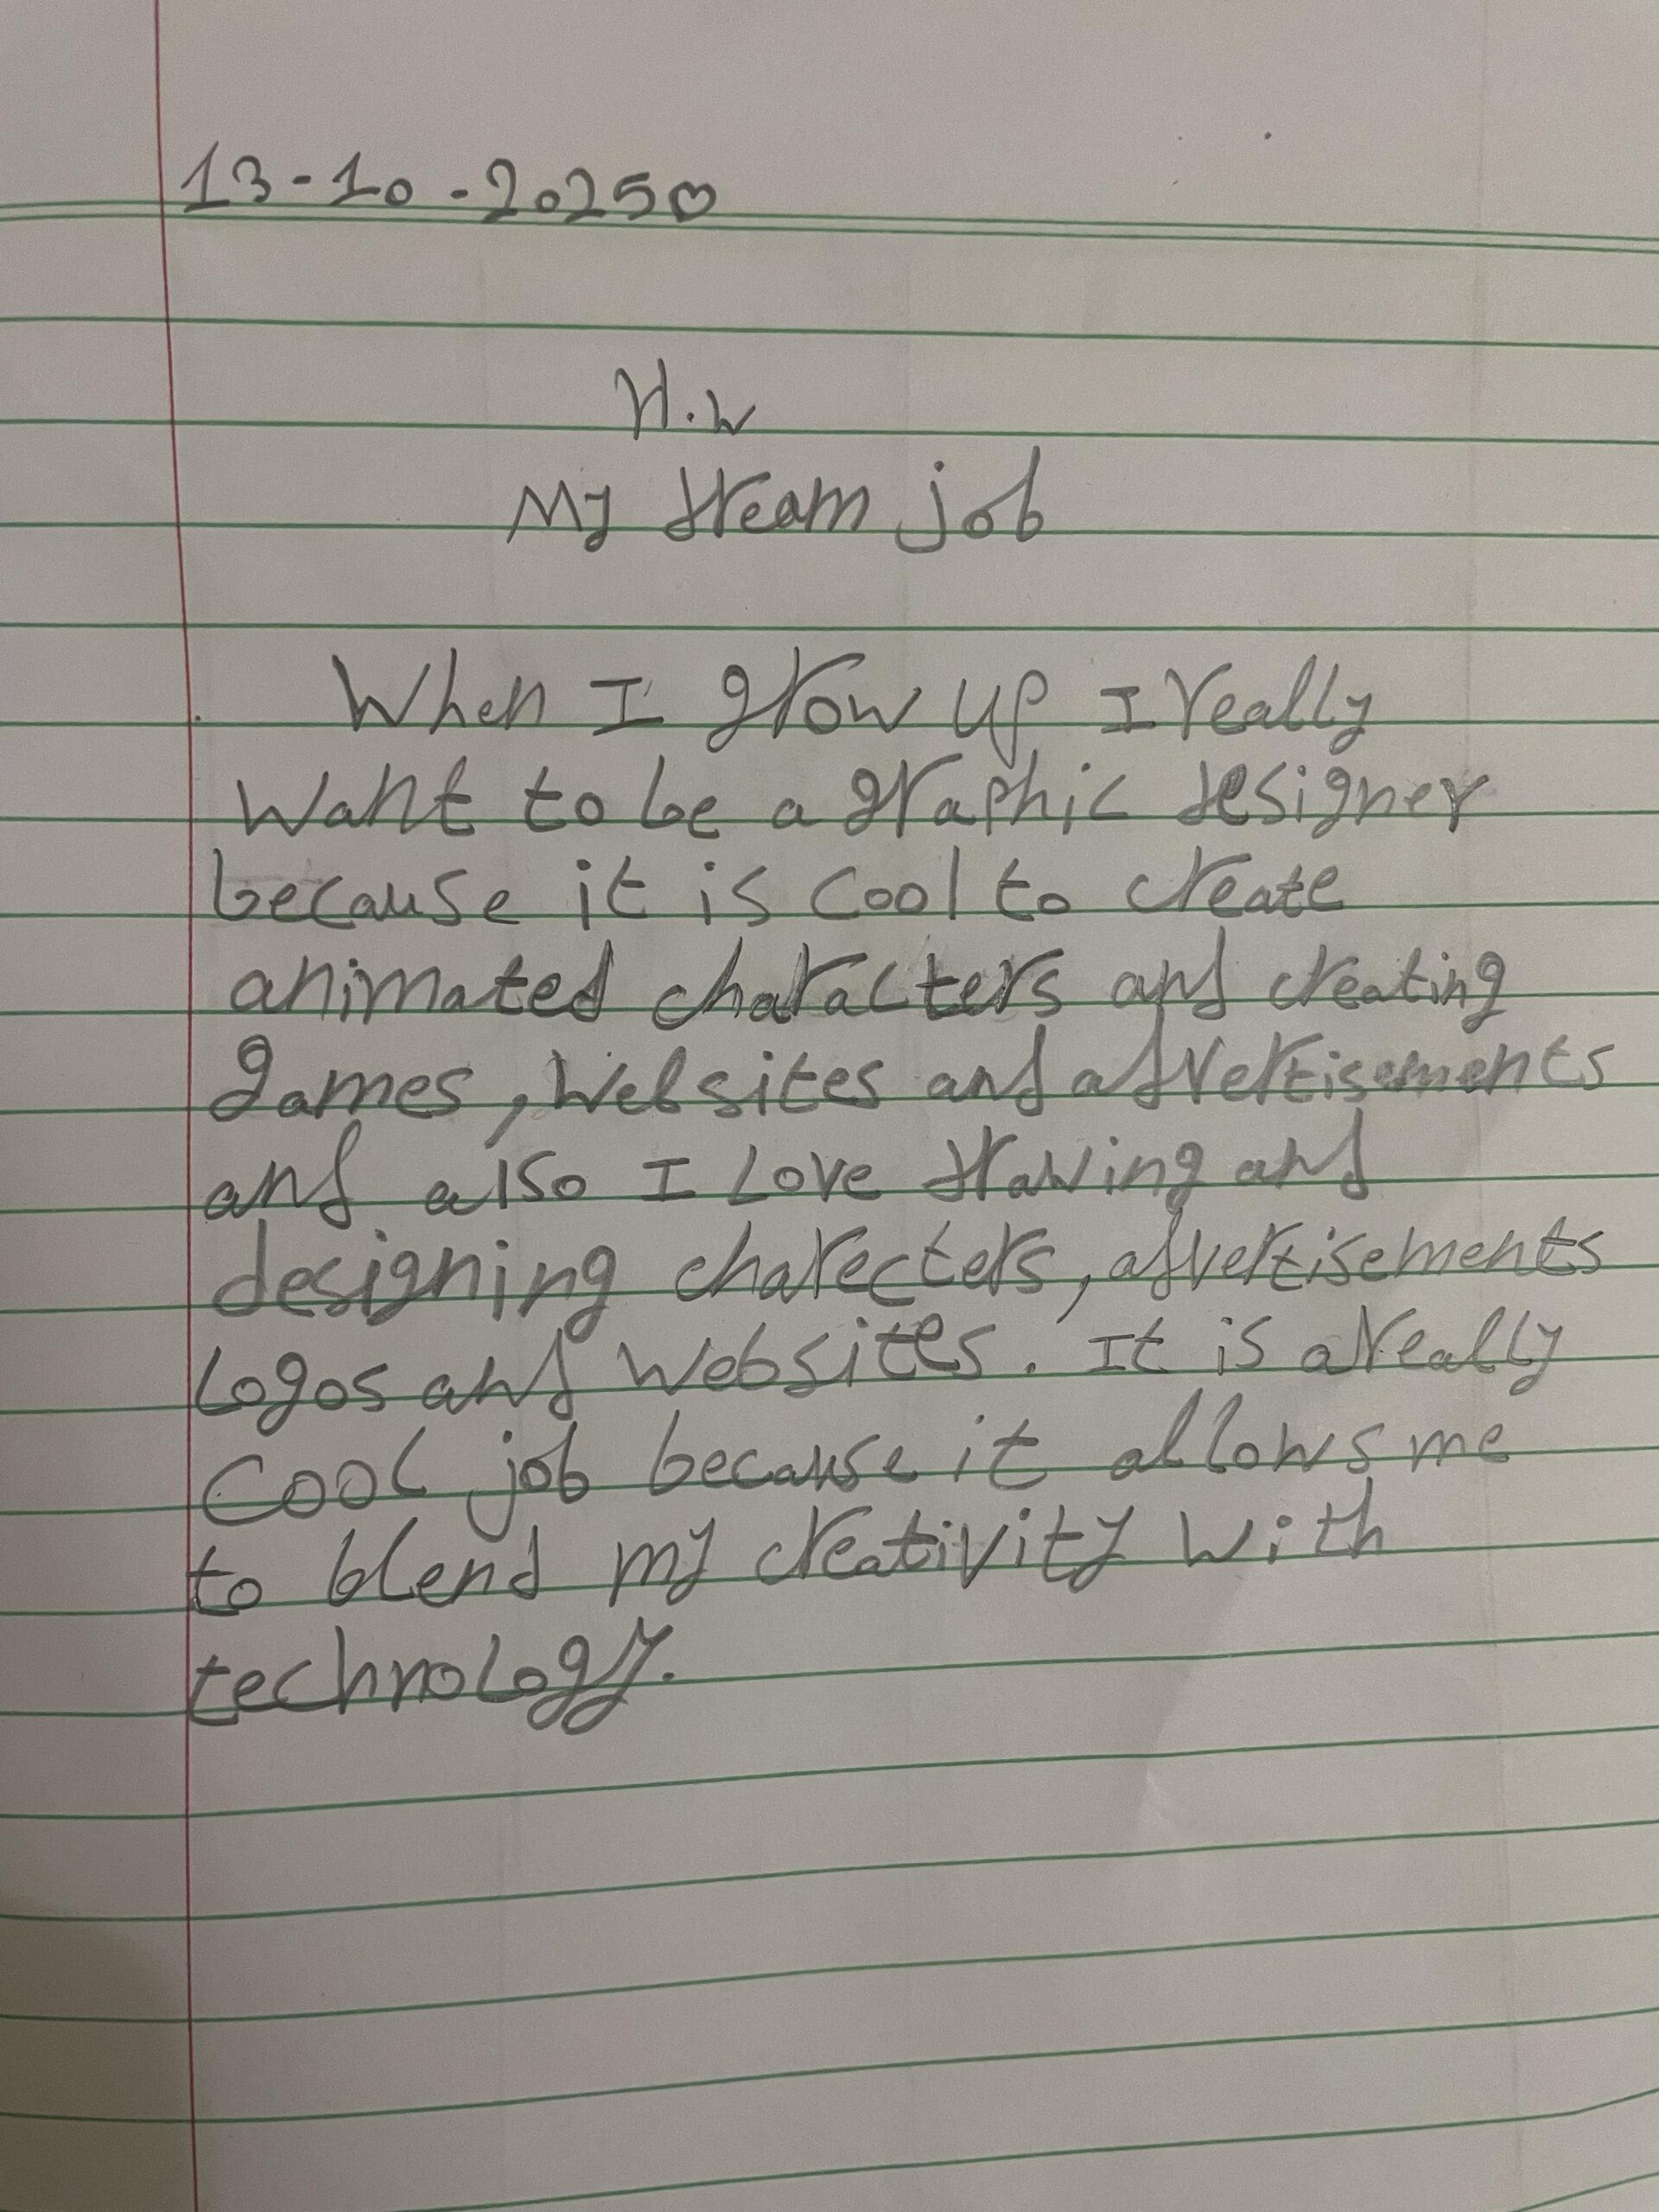 13-10-2025♡
H.w
My dream job
When I grow up I really
want to be a graphic designer
because it is cool to create
animated characters and creating
games, websites and advertisements
and also I Love drawing and
designing charecters, advertisements
Logos and websites. It is a really
cool job because it allows me
to blend my creativity with
technology.